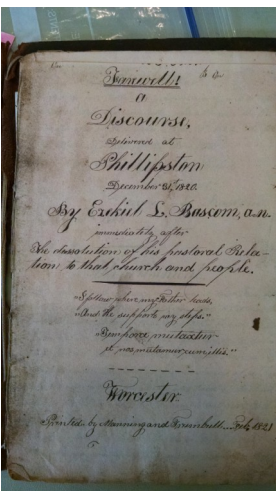 Farewell!
a
Discourse,
delivered at
Phillipston
December 31, 1820.
By Ezekiel L. Bascom, a.m.
immediately after
the dissolution of his pastoral Rela-
tion to that church and people.
"I follow where my Father leads,
"And he supports my steps."
"Tempora mutantur
et nos mutamur cum illis."
Worcester.
Printed by Manning and Trumbull... Feb. 1821